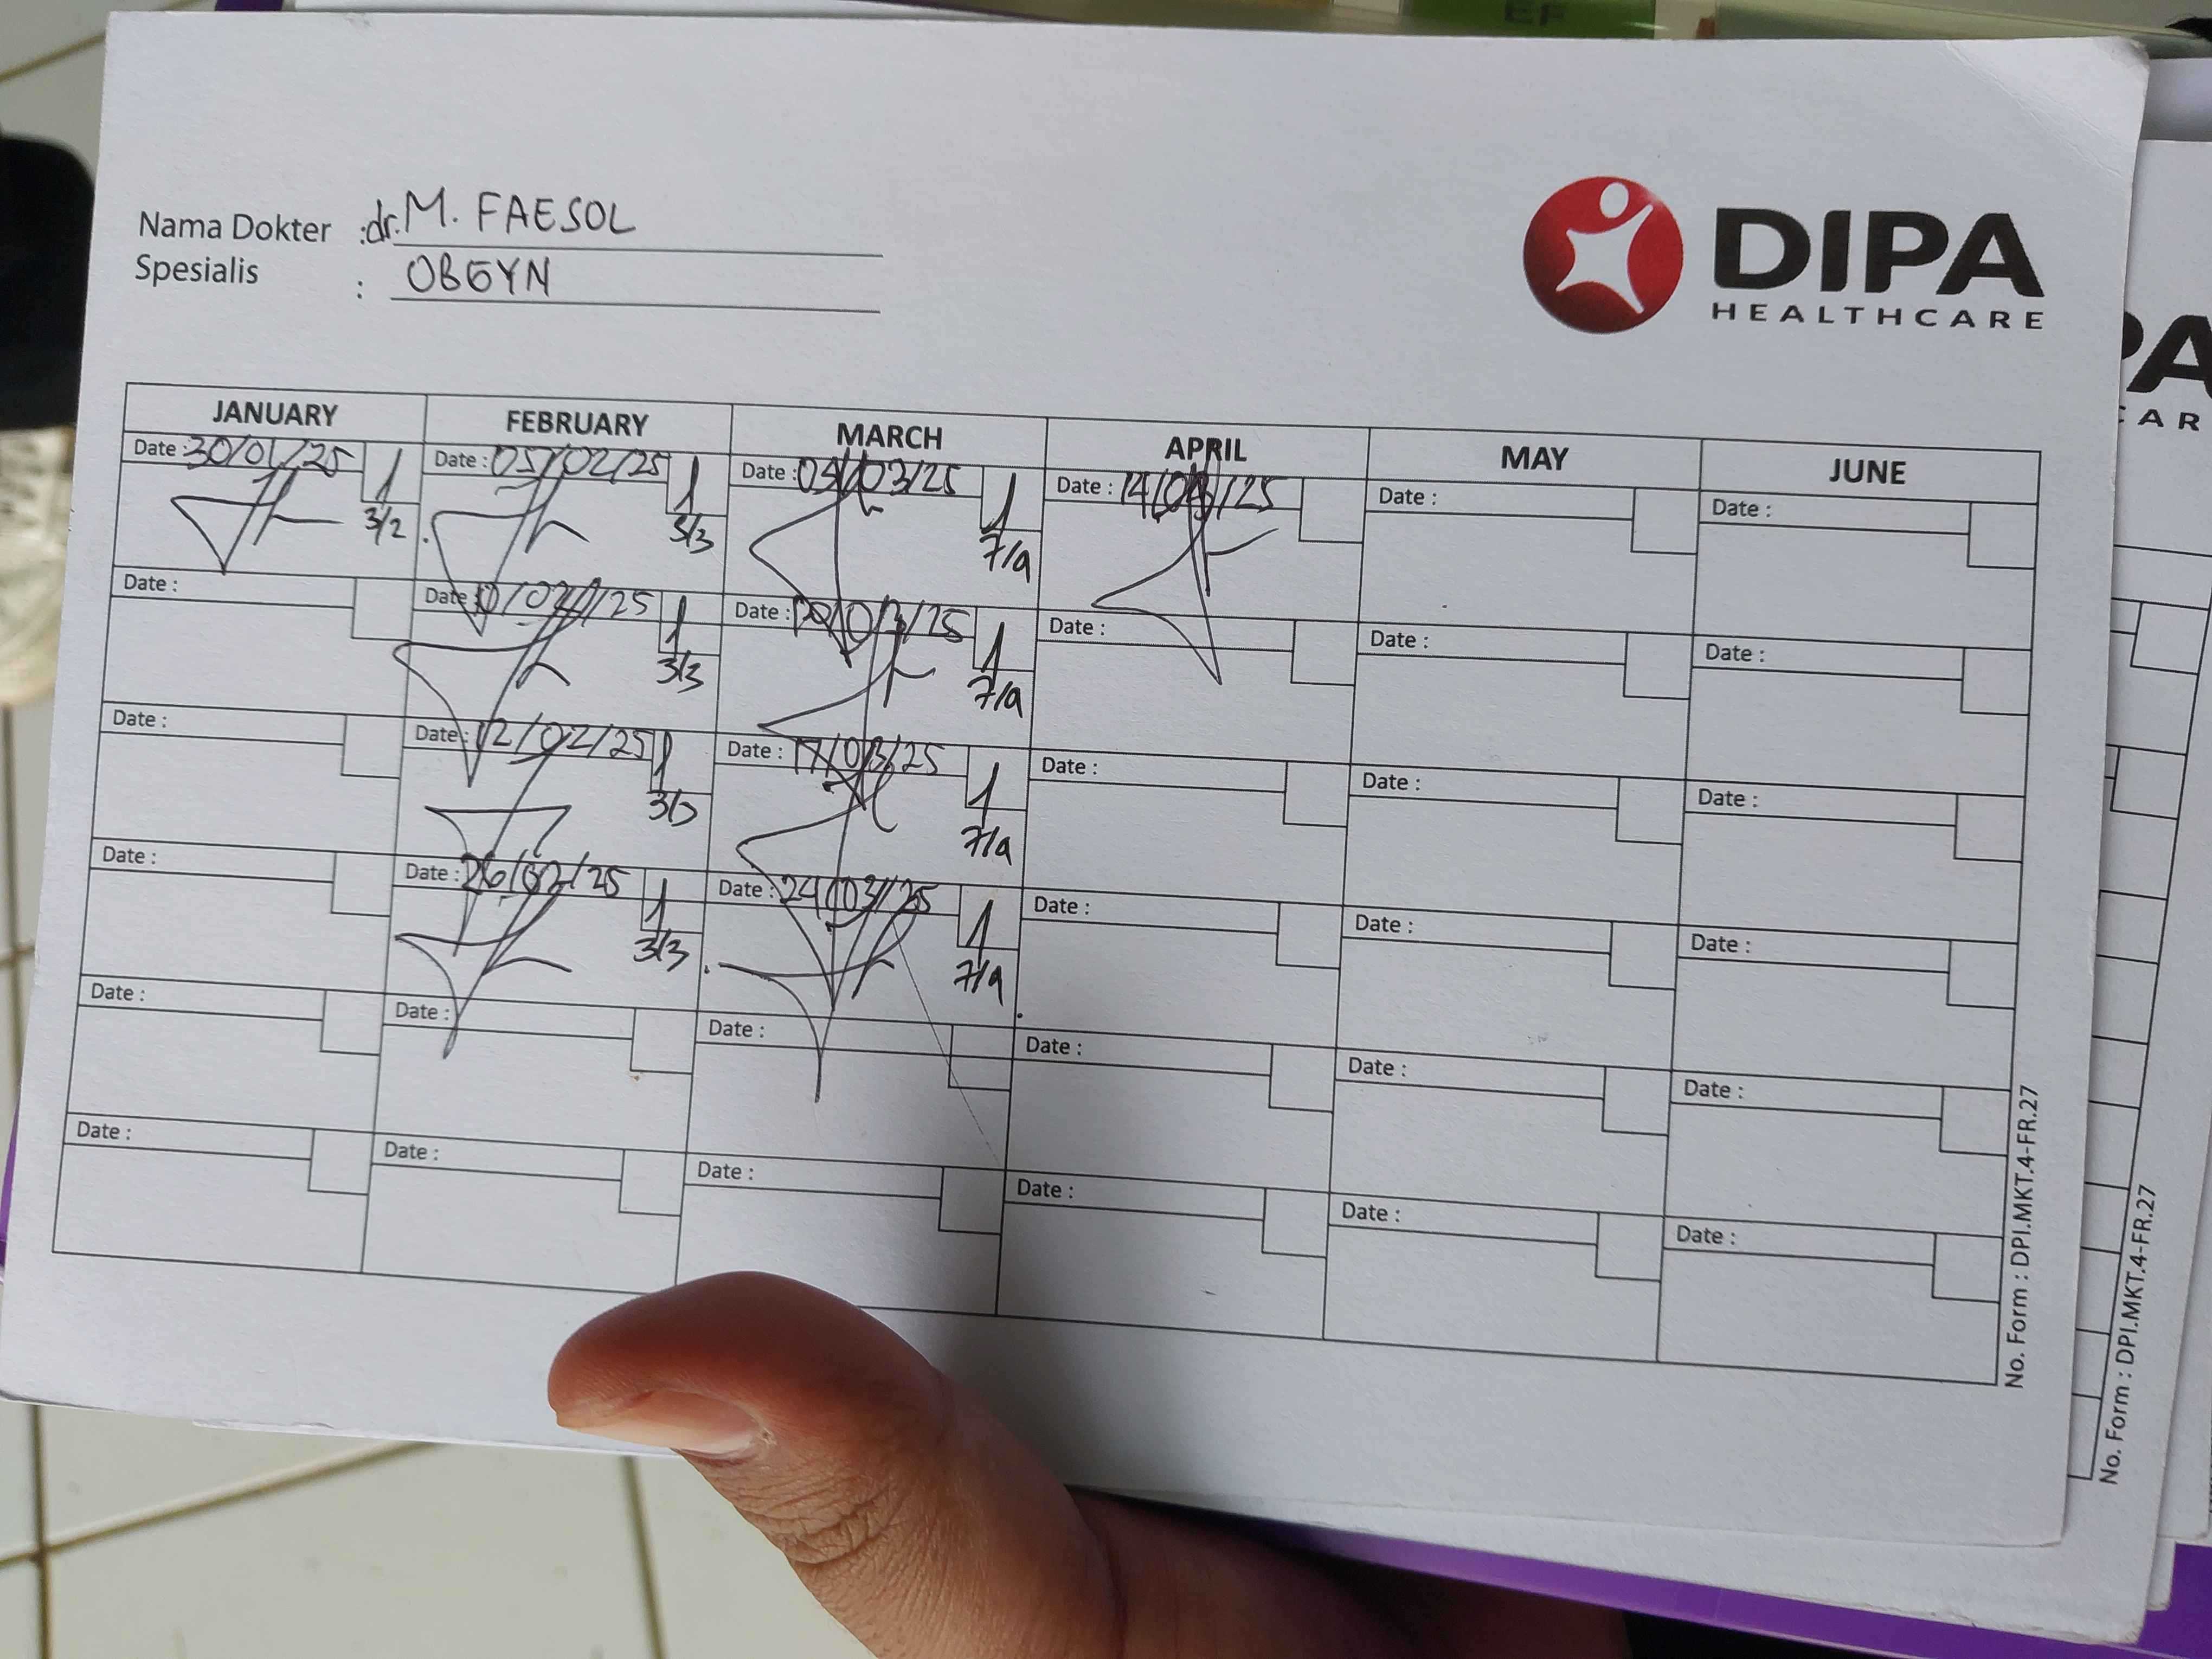 EF
Nama Dokter : dr. M. FAESOL
Spesialis : OBGYN
DIPA
HEALTHCARE
JANUARY FEBRUARY MARCH APRIL MAY JUNE
Date : 30/01/25 Date : 05/02/25 Date : 03/25 Date : 14/ /25 Date : Date :
3/2 3/3 7/a
Date : Date : /25 Date : /25 Date : Date : Date :
3/3 7/a
Date : Date : 12/02/25 Date : 17/03/25 Date : Date : Date :
3/3 7/a
Date : Date : 26/02/25 Date : 24/03/25 Date : Date : Date :
3/3 7/a
Date : Date : Date : Date : Date : Date :
Date : Date : Date : Date : Date : Date :
No. Form : DPI.MKT.4-FR.27
PA
CAR
No. Form : DPI.MKT.4-FR.27